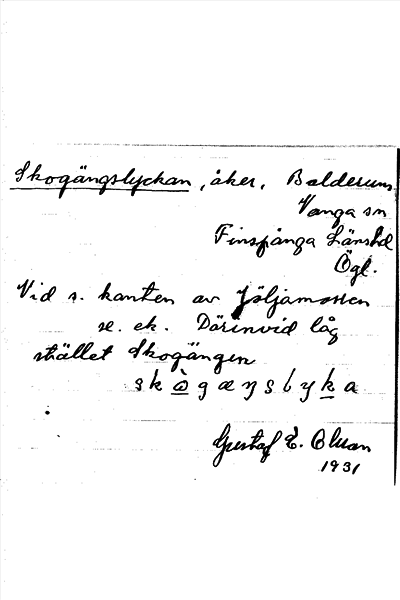 Skogängslyckan, åker, Balderum
Vånga sn
Finspånga Länshd
Ögl.
Vid s. kanten av Jöljamossen
se. ek. Därinvid låg
stället Skogängen
skògæŋslyka
Gustaf E.
1931